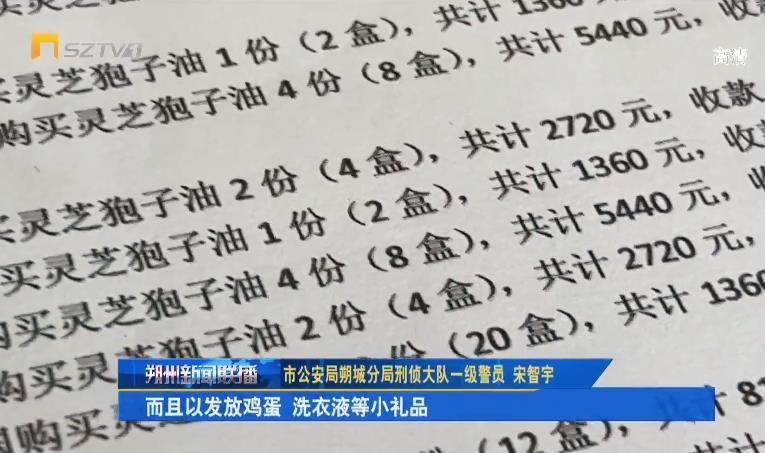 SZTV1
高清
买灵芝狍子油 1 份（2 盒），共计 1360
购买灵芝狍子油 4 份（8 盒），共计 5440 元，收款
买灵芝狍子油 2 份（4 盒），共计 2720 元，收款
买灵芝狍子油 1 份（2 盒），共计 1360 元，收款
买灵芝狍子油 4 份（8 盒），共计 5440 元，
购买灵芝狍子油 2 份（4 盒），共计 2720 元，
购买 份（20 盒），共计 1360
（12 盒），共计 8
朔州新闻联播
市公安局朔城分局刑侦大队一级警员 宋智宇
而且以发放鸡蛋 洗衣液等小礼品